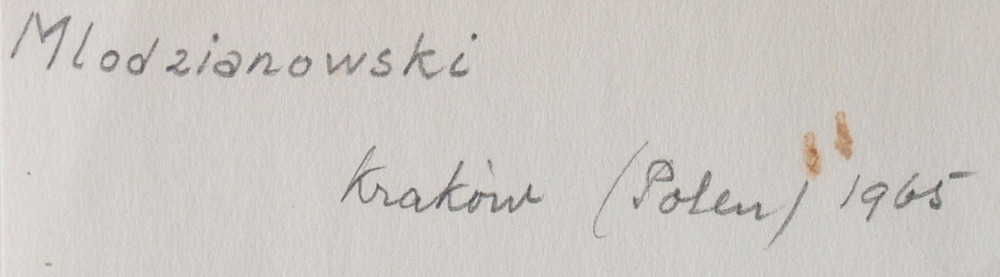 Mlodzianowski
Kraków (Polen) 1965